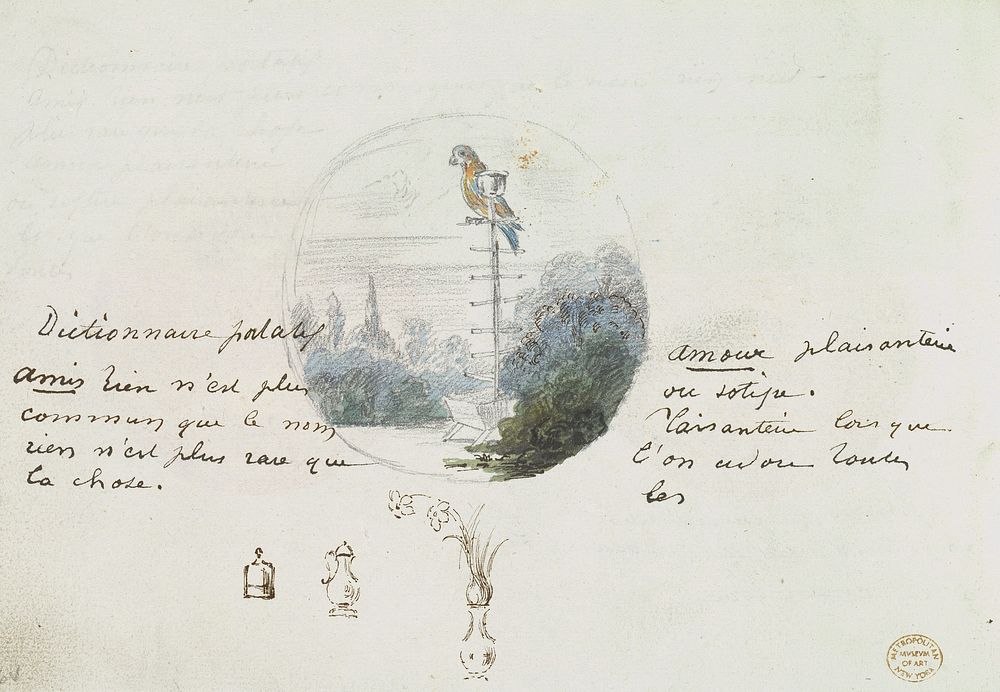 Dictionnaire portatif
amis rien n'est plus
commun que le nom
rien n'est plus rare que
la chose.
amour plaisanterie
ou sotise.
Plaisanterie lorsque
l'on adore toutes
les
METROPOLITAN
MVSEVM
OF ART
NEW YORK